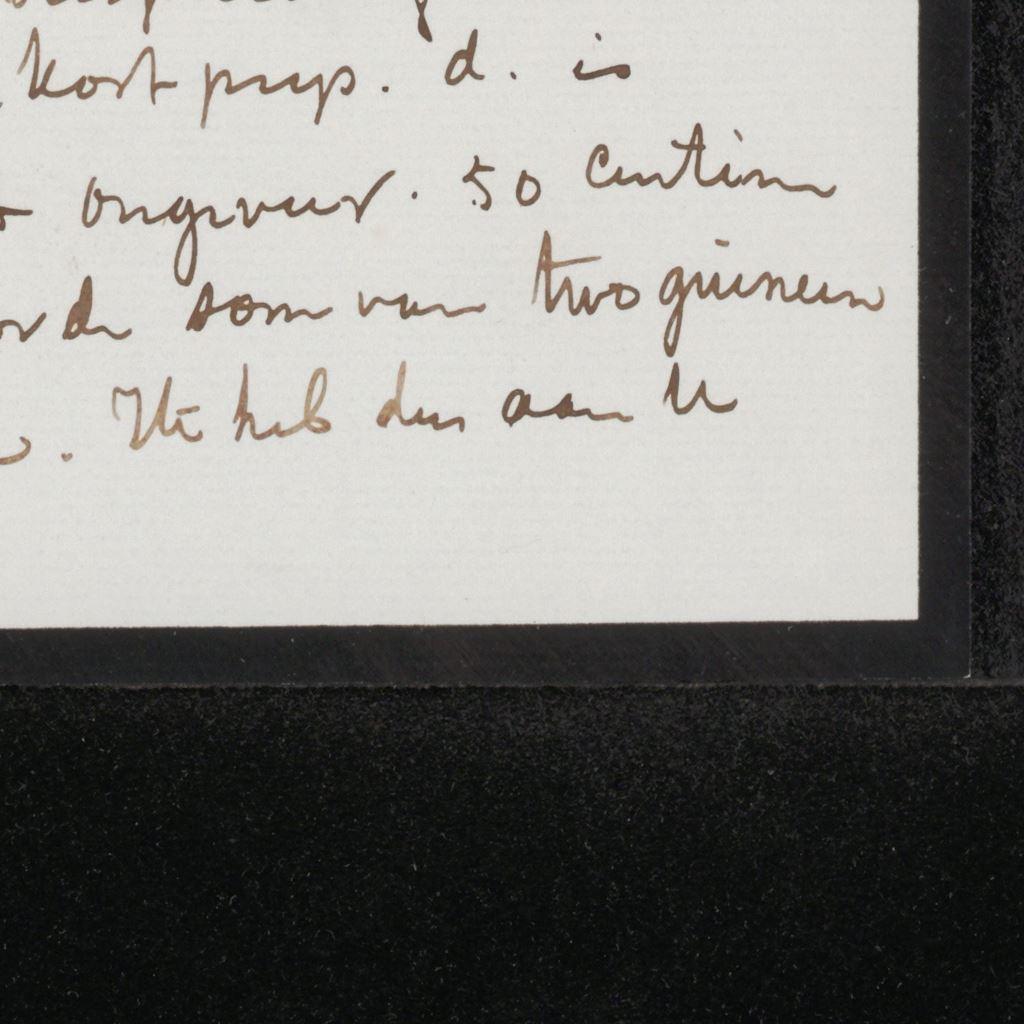 kost prijs. d. is
ongeveer. 50 centim
som van two guineeën
. Ik heb dus aan U